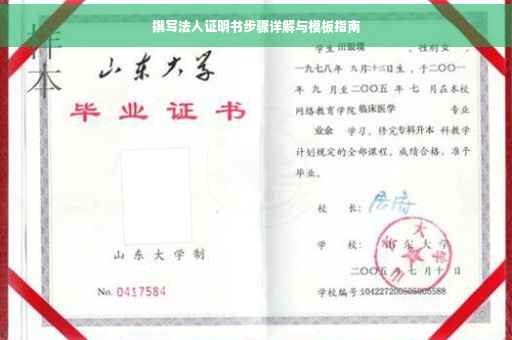 撰写法人证明书步骤详解与模板指南
样本
山东大学
毕业证书
山东大学制
No. 0417584
学生 性别女，
一九七八年 九月十三日生，于二〇〇一
年 九 月至二〇〇五 年 七 月在本校
网络教育学院 临床医学 专业
业余 学习，修完专科升本 科教学
计划规定的全部课程，成绩合格，准予
毕业。
校 长：
学 校：山东大学
二〇〇五 年 七 月 十 日
学校编号:104227200505005588